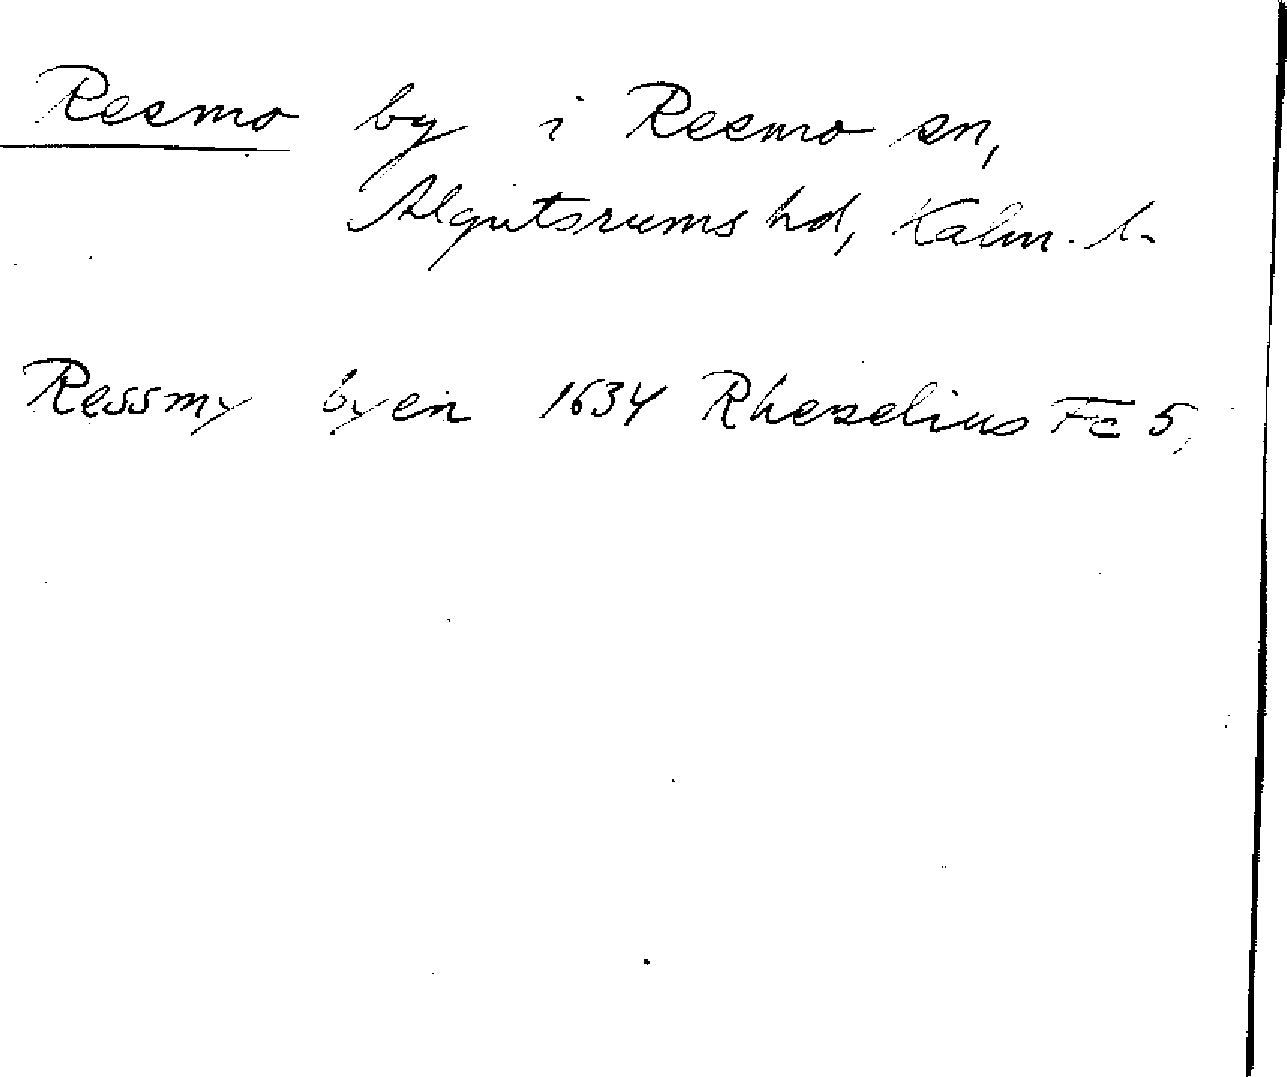 Resmo by i Resmo sn,
Algutsrums hd, Kalm. l.
Ressmy byen 1634 Rhezelius Fc 5,